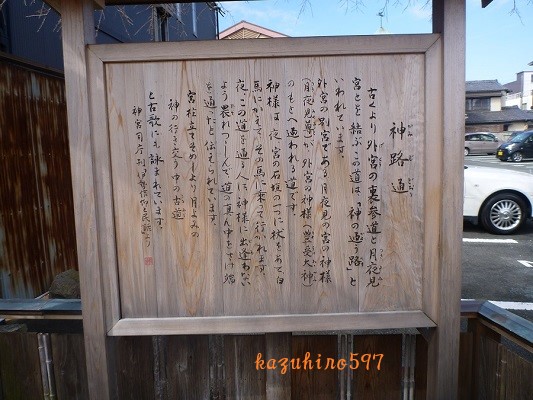 神路通
かみじどおり
古くより外宮の裏参道と月夜見
宮とを結ぶこの道は「神の通う路」と
いわれています。
外宮の別宮である月夜見の宮の神様
（月夜見尊）が外宮の神様（豊受大神）
のもとへ通われる道です。
神様は夜、宮の石垣の一つに杖をあて白
馬にかえて、その馬に乗って行かれます。
夜、この道を通る人は神様に出逢わない
よう畏れつつしんで道の真ん中をさけ端
を通ったと伝えられています。
宮柱立てそめしより月よみの
神の行き交う中の古道
と古歌にも詠まれています。
神宮司庁刊
kazuhiro597